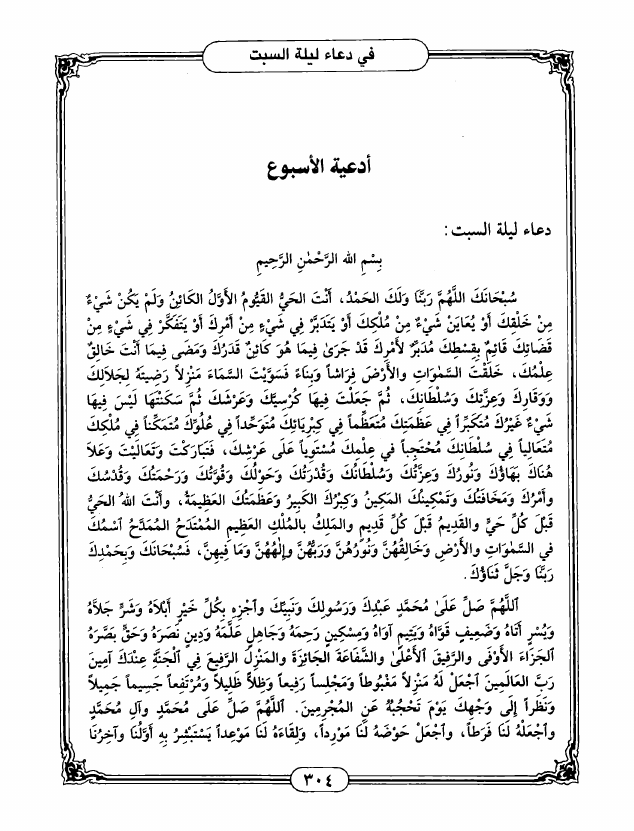 في دعاء ليلة السبت
أدعية الأسبوع
دعاء ليلة السبت:
بِسْمِ اللهِ الرَّحْمٰنِ الرَّحِيمِ
سُبْحَانَكَ اللَّهُمَّ رَبَّنَا وَلَكَ الحَمْدُ، أَنْتَ الحَيُّ القَيُّومُ الأَوَّلُ الكَائِنُ وَلَمْ يَكُنْ شَيْءٌ
مِنْ خَلْقِكَ أَوْ يُعَايِنْ شَيْءٌ مِنْ مُلْكِكَ أَوْ يَتَدَبَّرْ فِي شَيْءٍ مِنْ أَمْرِكَ أَوْ يَتَفَكَّرْ فِي شَيْءٍ مِنْ
قَضَائِكَ قَائِمٌ بِقِسْطِكَ مُدَبِّرٌ لأَمْرِكَ قَدْ جَرَىٰ فِيمَا هُوَ كَائِنٌ قَدَرُكَ وَمَضَى فِيمَا أَنْتَ خَالِقٌ
عِلْمُكَ، خَلَقْتَ السَّمٰوَاتِ والأَرْضَ فِرَاشاً وَبِنَاءً فَسَوَّيْتَ السَّمَاءَ مَنْزِلاً رَضِيتَهُ لِجَلالِكَ
وَوَقَارِكَ وَعِزَّتِكَ وَسُلْطَانِكَ، ثُمَّ جَعَلْتَ فِيهَا كُرْسِيَّكَ وَعَرْشَكَ ثُمَّ سَكَنْتَهَا لَيْسَ فِيهَا
شَيْءٌ غَيْرُكَ مُتَكَبِّراً فِي عَظَمَتِكَ مُتَعَظِّماً فِي كِبْرِيَائِكَ مُتَوَحِّداً فِي عُلُوِّكَ مُتَمَكِّناً فِي مُلْكِكَ
مُتَعَالِياً فِي سُلْطَانِكَ مُحْتَجِباً فِي عِلْمِكَ مُسْتَوِياً عَلَى عَرْشِكَ، فَتَبَارَكْتَ وَتَعَالَيْتَ وَعَلاَ
هُنَاكَ بَهَاؤُكَ وَنُورُكَ وَعِزَّتُكَ وَسُلْطَانُكَ وَقُدْرَتُكَ وَحَوْلُكَ وَقُوَّتُكَ وَرَحْمَتُكَ وَقُدْسُكَ
وأَمْرُكَ وَمَخَافَتُكَ وَتَمْكِينُكَ المَكِينُ وَكِبْرُكَ الكَبِيرُ وَعَظَمَتُكَ العَظِيمَةُ، وأَنْتَ اللهُ الحَيُّ
قَبْلَ كُلِّ حَيٍّ والقَدِيمُ قَبْلَ كُلِّ قَدِيمٍ والمَلِكُ بِالمُلْكِ العَظِيمِ المُمْتَدَحُ المُمَدَّحُ ٱسْمُكَ
فِي السَّمٰوَاتِ والأَرْضِ وَخَالِقُهُنَّ وَنُورُهُنَّ وَرَبُّهُنَّ وإِلٰهُهُنَّ وَمَا فِيهِنَّ، فَسُبْحَانَكَ وَبِحَمْدِكَ
رَبَّنَا وَجَلَّ ثَنَاؤُكَ.
ٱللَّهُمَّ صَلِّ عَلَىٰ مُحَمَّدٍ عَبْدِكَ وَرَسُولِكَ وَنَبِيِّكَ وٱجْزِهِ بِكُلِّ خَيْرٍ أَبْلاَهُ وَشَرٍّ جَلاَهُ
وَيُسْرٍ أَتَاهُ وَضَعِيفٍ قَوَّاهُ وَيَتِيمٍ آوَاهُ وَمِسْكِينٍ رَحِمَهُ وَجَاهِلٍ عَلَّمَهُ وَدِينٍ نَصَرَهُ وَحَقٍّ بَصَّرَهُ
ٱلجَزَاءَ الأَوْفَى والرَّفِيقَ ٱلأَعْلَىٰ والشَّفَاعَةَ الجَائِزَةَ والمَنْزِلَ الرَّفِيعَ فِي ٱلْجَنَّةِ عِنْدَكَ آمِينَ
رَبَّ العَالَمِينَ ٱجْعَلْ لَهُ مَنْزِلاً مَغْبُوطاً وَمَجْلِساً رَفِيعاً وَظِلاًّ ظَلِيلاً وَمُرْتَفَعاً جَسِيماً جَمِيلاً
وَنَظَراً إِلَى وَجْهِكَ يَوْمَ تَحْجُبُهُ عَنِ المُجْرِمِينَ. ٱللَّهُمَّ صَلِّ عَلَى مُحَمَّدٍ وآلِ مُحَمَّدٍ
وٱجْعَلْهُ لَنَا فَرَطاً، وٱجْعَلْ حَوْضَهُ لَنَا مَوْرِداً، وَلِقَاءَهُ لَنَا مَوْعِداً يَسْتَبْشِرُ بِهِ أَوَّلُنَا وآخِرُنَا
٣٠٤